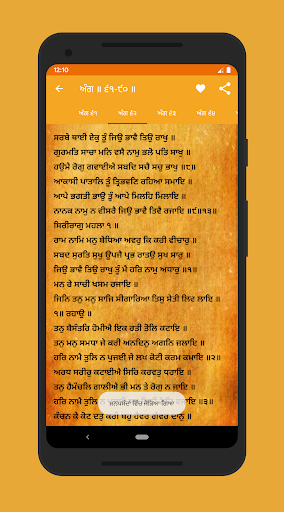 12:10
ਅੰਗ ॥ ੬੧-੯੦ ॥
ਅੰਗ ੬੧ ਅੰਗ ੬੨ ਅੰਗ ੬੩ ਅੰਗ ੬੪
ਸਰਬੇ ਥਾਈ ਏਕੁ ਤੂੰ ਜਿਉ ਭਾਵੈ ਤਿਉ ਰਾਖੁ ॥
ਗੁਰਮਤਿ ਸਾਚਾ ਮਨਿ ਵਸੈ ਨਾਮੁ ਭਲੋ ਪਤਿ ਸਾਖੁ ॥
ਹਉਮੈ ਰੋਗੁ ਗਵਾਈਐ ਸਬਦਿ ਸਚੈ ਸਚੁ ਭਾਖੁ ॥੮॥
ਆਕਾਸੀ ਪਾਤਾਲਿ ਤੂੰ ਤ੍ਰਿਭਵਣਿ ਰਹਿਆ ਸਮਾਇ ॥
ਆਪੇ ਭਗਤੀ ਭਾਉ ਤੂੰ ਆਪੇ ਮਿਲਹਿ ਮਿਲਾਇ ॥
ਨਾਨਕ ਨਾਮੁ ਨ ਵੀਸਰੈ ਜਿਉ ਭਾਵੈ ਤਿਵੈ ਰਜਾਇ ॥੯॥੧੩॥
ਸਿਰੀਰਾਗੁ ਮਹਲਾ ੧ ॥
ਰਾਮ ਨਾਮਿ ਮਨੁ ਬੇਧਿਆ ਅਵਰੁ ਕਿ ਕਰੀ ਵੀਚਾਰੁ ॥
ਸਬਦ ਸੁਰਤਿ ਸੁਖੁ ਊਪਜੈ ਪ੍ਰਭ ਰਾਤਉ ਸੁਖ ਸਾਰੁ ॥
ਜਿਉ ਭਾਵੈ ਤਿਉ ਰਾਖੁ ਤੂੰ ਮੈ ਹਰਿ ਨਾਮੁ ਅਧਾਰੁ ॥੧॥
ਮਨ ਰੇ ਸਾਚੀ ਖਸਮ ਰਜਾਇ ॥
ਜਿਨਿ ਤਨੁ ਮਨੁ ਸਾਜਿ ਸੀਗਾਰਿਆ ਤਿਸੁ ਸੇਤੀ ਲਿਵ ਲਾਇ ॥
੧॥ ਰਹਾਉ ॥
ਤਨੁ ਬੈਸੰਤਰਿ ਹੋਮੀਐ ਇਕ ਰਤੀ ਤੋਲਿ ਕਟਾਇ ॥
ਤਨੁ ਮਨੁ ਸਮਧਾ ਜੇ ਕਰੀ ਅਨਦਿਨੁ ਅਗਨਿ ਜਲਾਇ ॥
ਹਰਿ ਨਾਮੈ ਤੁਲਿ ਨ ਪੁਜਈ ਜੇ ਲਖ ਕੋਟੀ ਕਰਮ ਕਮਾਇ ॥੨॥
ਅਰਧ ਸਰੀਰੁ ਕਟਾਈਐ ਸਿਰਿ ਕਰਵਤੁ ਧਰਾਇ ॥
ਤਨੁ ਹੈਮੰਚਲਿ ਗਾਲੀਐ ਭੀ ਮਨ ਤੇ ਰੋਗੁ ਨ ਜਾਇ ॥
ਹਰਿ ਨਾਮੈ ਤੁਲਿ ਨ ॥੩॥
ਕੰਚਨ ਕੇ ਕੋਟ ਦਤੁ ਕਰੀ ਬਹੁ ਹੈਵਰ ਗੈਵਰ ਦਾਨੁ ॥
ਮਨਪਸੰਦਾਂ ਵਿੱਚ ਜੋੜਿਆ ਗਿਆ